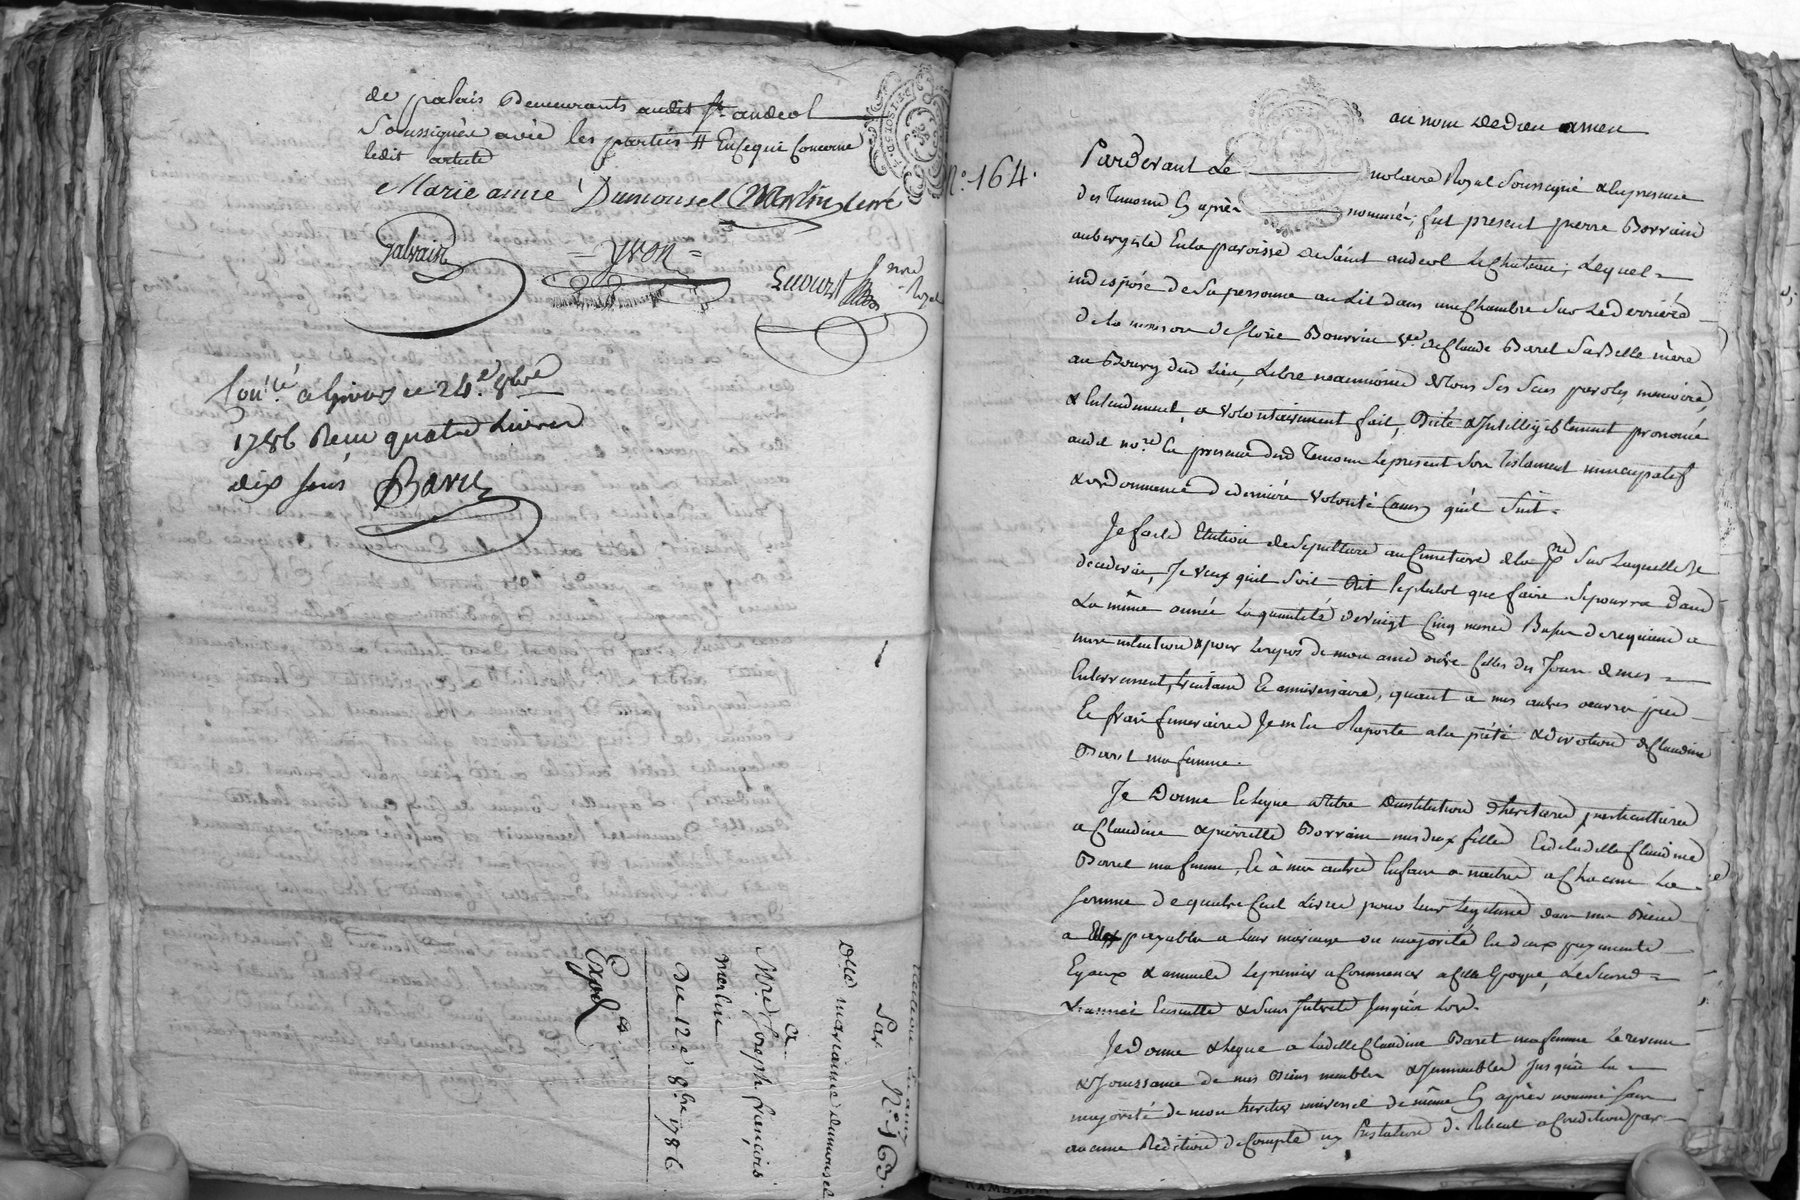 de palais demeurants audit St andeol
Soussignée avec les parties # En ce qui Concerne
ledit article
Marie anne Dumonsel Merlin
Galvain
= yvon =
Lucourt nre Royal
Con.lé a Givors ce 24.e 8bre
1786 Recu quatre Livres
dix sous Baru
Par N.o 163.
Dlle marianne dumonsel
a
Mre Joseph françois
merlin
Du 12.e 8.bre 1786
Exped
N.o 164.
au nom de Dieu amen
Pardevant Le notaire Royal Soussigné & en presence
des Temoins Cy après nommés, fut present pierre Borrain
aubergiste En la paroisse de Saint andeol Le Chateau, Lequel =
indisposé de Sa personne au Lit dans une Chambre Sur Le Derrière
de la maison de Bourrin ve. de Claude Barel Sa Belle mère
au Bourg dud Lieu, Libre neanmoins de tous Ses Sens paroles, memoire,
& Entendement, a volontairement fait, Dicté & Intelligiblement prononcé
aud no.re En presence desd Temoins Le present Son Testament nuncupatif
& ordonnance de derniere volonté Comme qu'il Suit =
Je fais Election de Sepulture au Cimetiere de la pre Sur Laquelle Je
decederai, Je veux qu'il Soit Dit Le plutot que faire Se pourra dans
La même année La quantité de vingt Cinq messes Basses de requiem a
mon intention & pour Le repos de mon ame outre Celles du Jour de mes =
Enterrement, trentaine & anniversaire, quant a mes autres oeuvres pies
& frais funeraires Je m'en Raporte a la pieté & devotion de Claudine
Barel ma femme.
Je Donne & Legue a titre d'institution d'heritiere particuliere
a Claudine & pierrette Borrain mes deux filles & de ladelle Claudine
Barrel ma femme, & à mes autres Enfans a naitre a Chacun La =
Somme de quatre Cent Livres pour Leur Legitime dans mes Biens
a payable a Leur mariage ou majorité En deux payements
Egaux & annuels Le premier a Commencer a Cette Epoque, Le Second =
L'année Ensuitte & Sans Interets Jusqu'a Lors.
Je donne & Legue a Ladelle Claudine Baret ma femme Le revenu
& Jouissance de mes Biens meubles & Immeubles Jusqu'a la =
majorité de mon heritier universel de même Cy après nommé Sans
aucune Reddition de Compte ny Prestation de Reliqat a Condition par